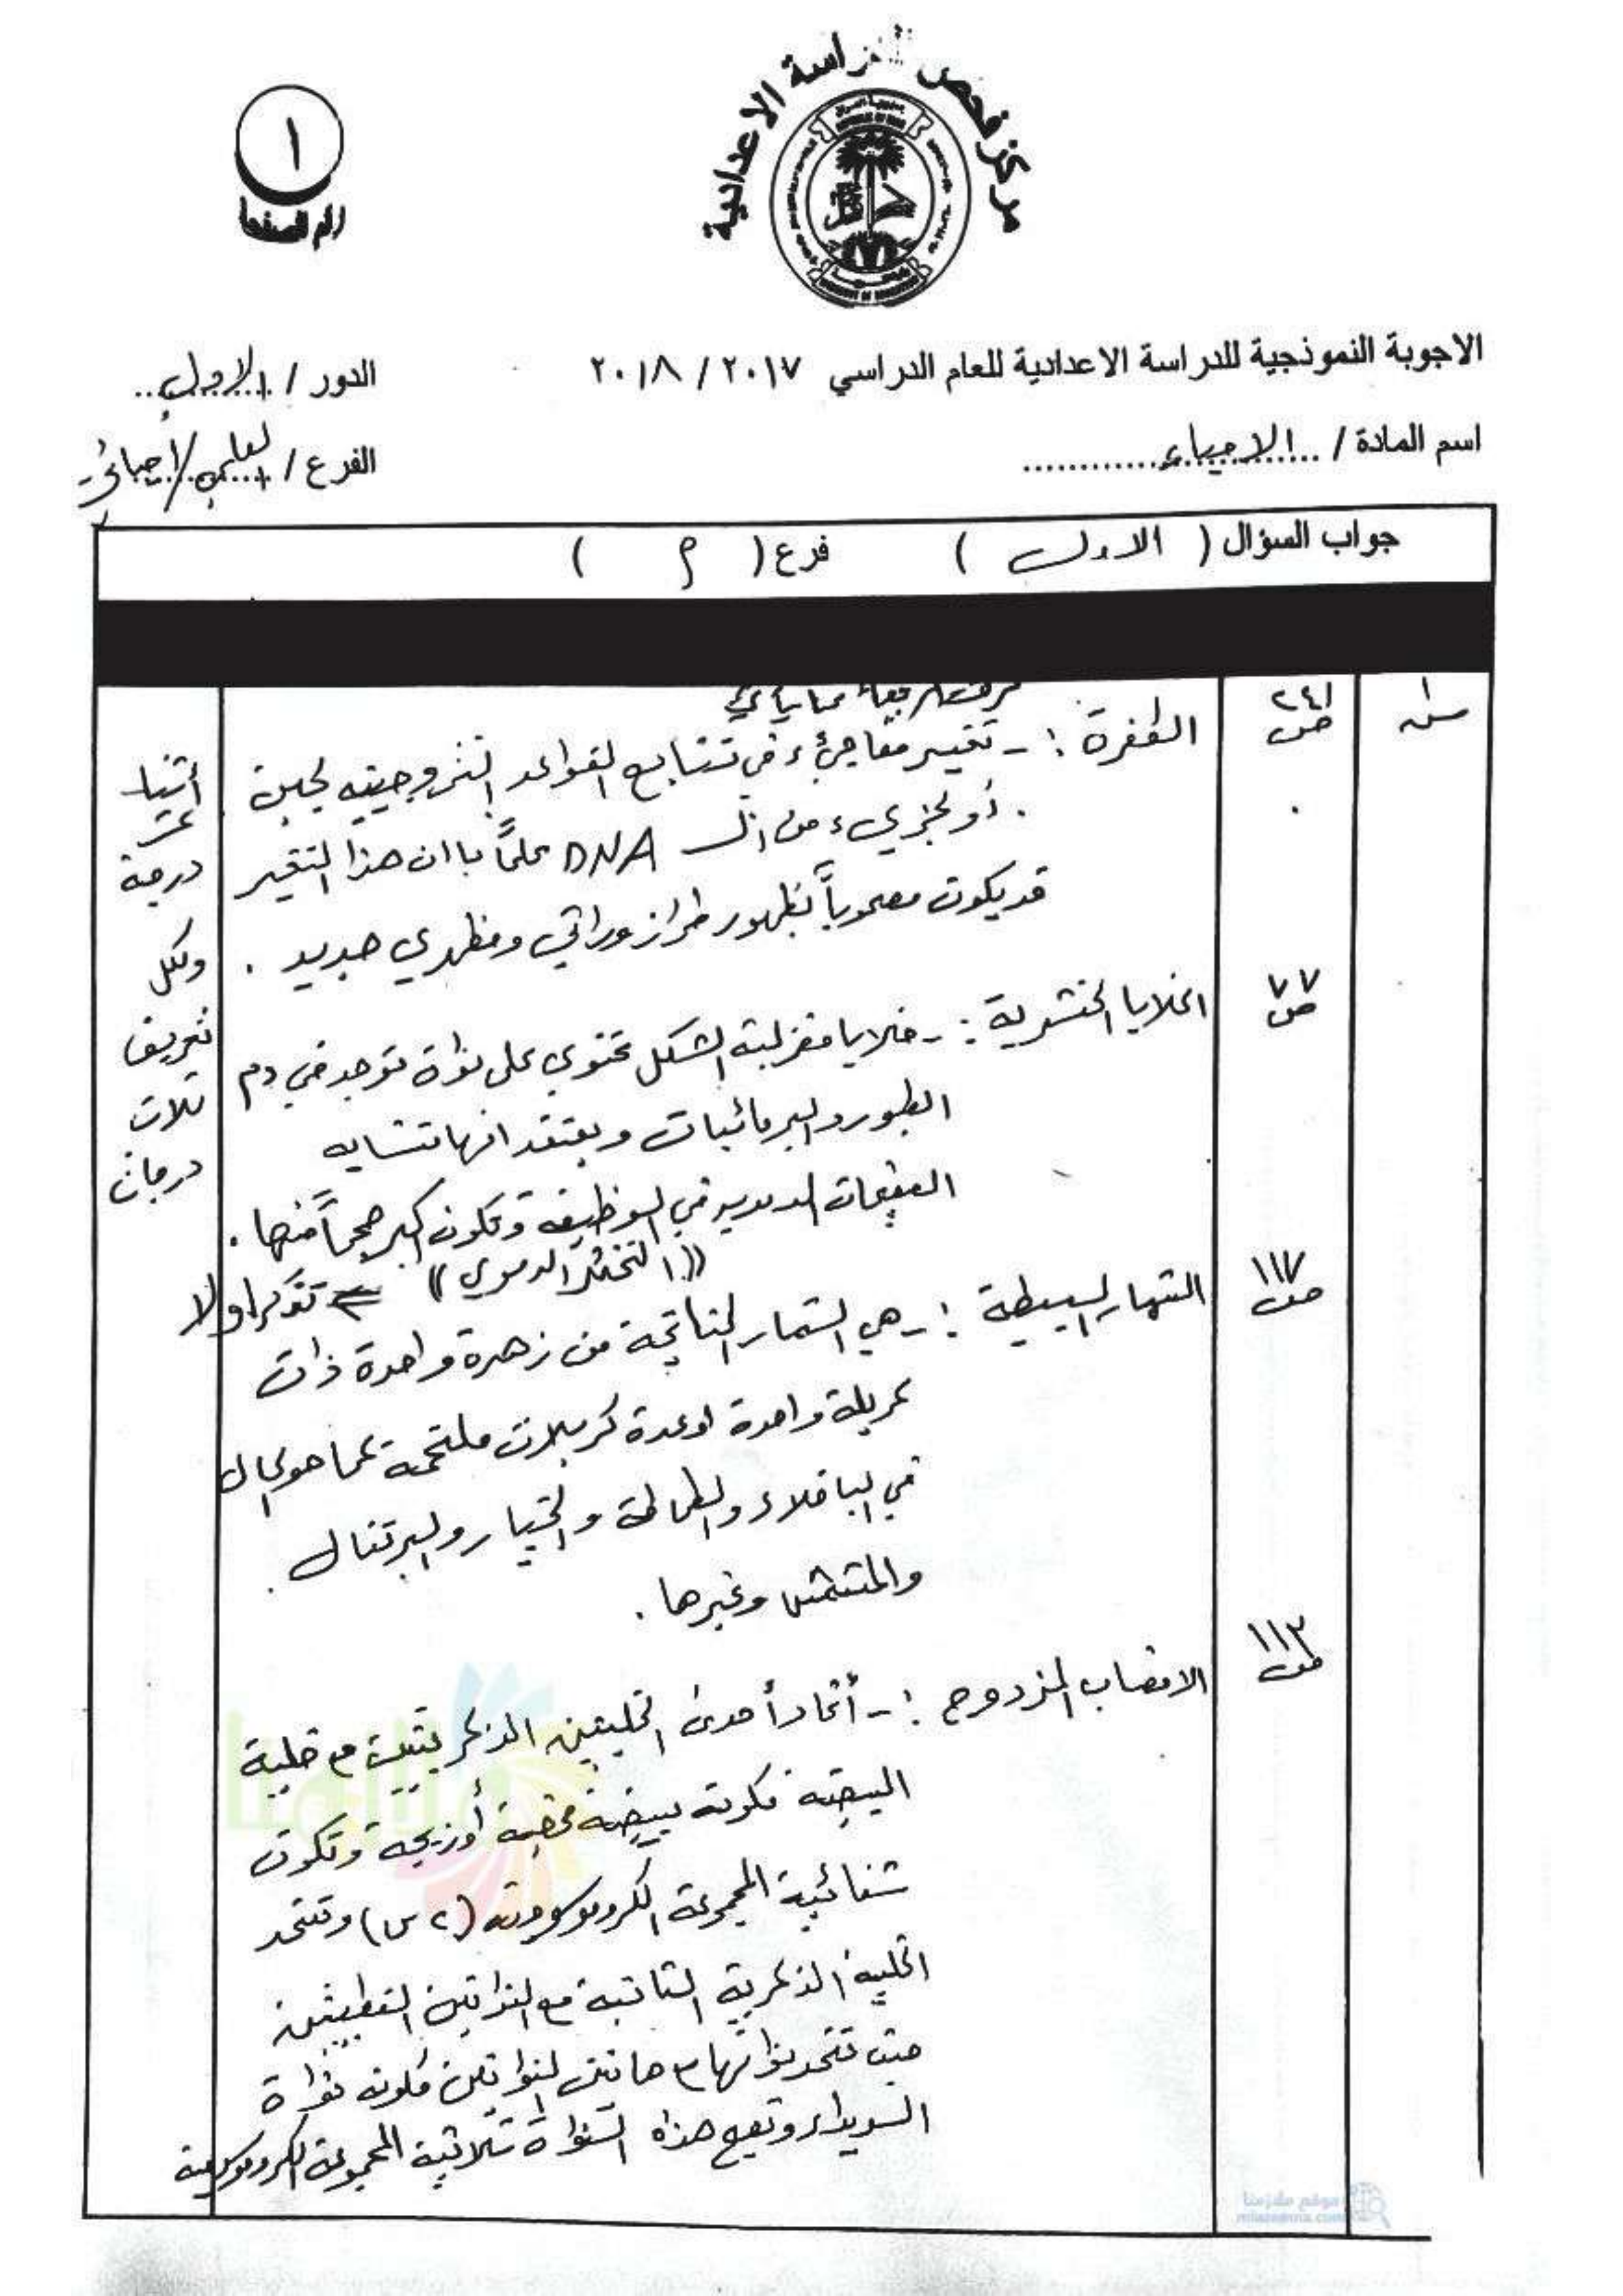 مركز فحص الدراسة الاعدادية
١
رقم الصفحة
الاجوبة النموذجية للدراسة الاعدادية للعام الدراسي ٢٠١٧ / ٢٠١٨
الدور / الاول
اسم المادة / الاحياء
الفرع / العلمي/احيائي
جواب السؤال ( الاول ) فرع ( أ )
س١
ص ٢٤١
الطفرة :- تغيير مفاجيء في تتابع القواعد النتروجينيه لجين
أو لجزيء من الـ DNA علماً باان هذا التغير
قد يكون مصحوباً بظهور طراز وراثي ومظهري جديد .
ص ٧٧
الخلايا الخثرية :- خلايا مغزلية الشكل تحتوي على نواة توجد في دم
الطيور والبرمائيات ويعتقد انها تشابه
الصفيحات الدموية في الوظيفة وتكون اكبر حجماً منها .
(( التخثر الدموي )) تذكر اولا
ص ١١٧
الثمار البسيطة :- هي الثمار الناتجة من زهرة واحدة ذات
كربلة واحدة او عدة كربلات ملتحمة كما هو الحال
في الباقلاء والطماطة والخيار والبرتقال .
والمشمش وغيرها .
ص ١١٣
الاخصاب المزدوج :- أتحاد أحدى الخليتين الذكريتين مع خلية
البيضة مكونه بيضة مخصبة أو زيجة وتكون
ثنائية المجموعة الكروموسومية (٢ س) وتتحد
الخلية الذكرية الثانية مع النواتين القطبيتين
حيث تتحد نواتها مع هاتين النواتين مكونه نواة
السويداء وتصبح هذه النواة ثلاثية المجموعة الكروموسومية
أثنا
عشر
درجة
ولكل
تعريف
ثلاث
درجات
موقع ملازمنا
mlazemna.com